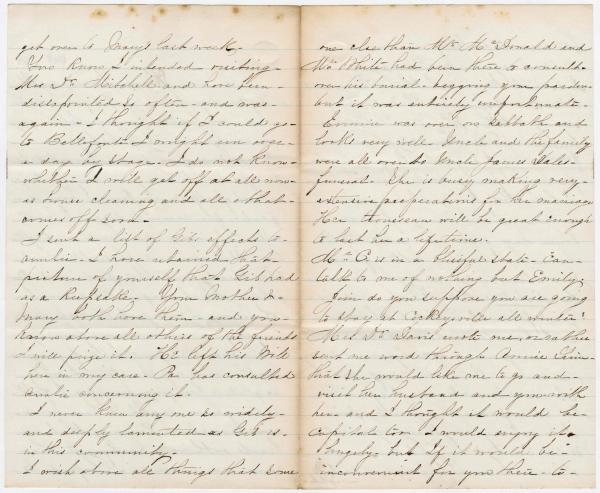 get over to Mary's last week.
You know I intended visiting
Mrs Dr Mitchell and have been
dissapointed so often - and was
again - I thought if I could go
to Bellefonte I might in
a day by Stage. I do not know
whether I will get off at all now
as house cleaning and all that
comes off soon.
I sent a list of Gibs effects to
. I have retained that
picture of yourself that Gib had
as a Keepsake - Your Mother &
Mary both have them - and you
know above all others of the friends
I will prize it. He left his Will
here in my care. Pa has consulted
concerning it.
I never knew any one so widely
and deeply lamented as Gib is -
in this community.
I wish above all things that some
one else than Mr McDonald and
Mr White had been there to consult
over his burial - begging your pardon
but it was entirely unfortunate.
Emmie was over on Sabbath and
looks very well. Uncle and the family
were all over to Uncle James Gales
funeral. She is busy making very
extensive preparations for her marriage
Her Trousseau will be great enough
to last her a lifetime.
Mr C is in a blissful state - Can
talk to me of nothing but Emily.
Jim do you suppose you are going
to stay at Cockeysville all winter?
Mrs Dr Davis wrote me, or rather
sent me word through Annie
that she would like me to go and
visit her husband and you with
her - and I thought it would be
capital too - I would enjoy it
hugely - but if it would be
inconvenient for you there - to